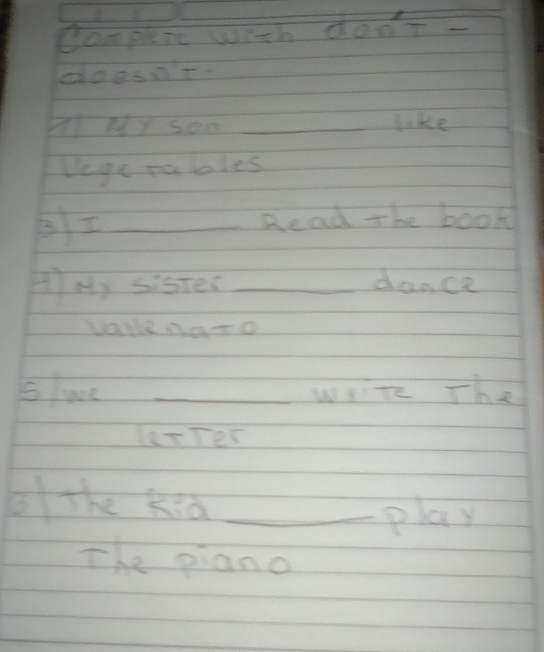 Complete with don't -
doesn't.
1) My son ______ like
Vegetables
3) I ______ Read the book
4) My sister ______ dance
vallenato
5) we ______ write The
letter
6) The kid ______ play
The piano